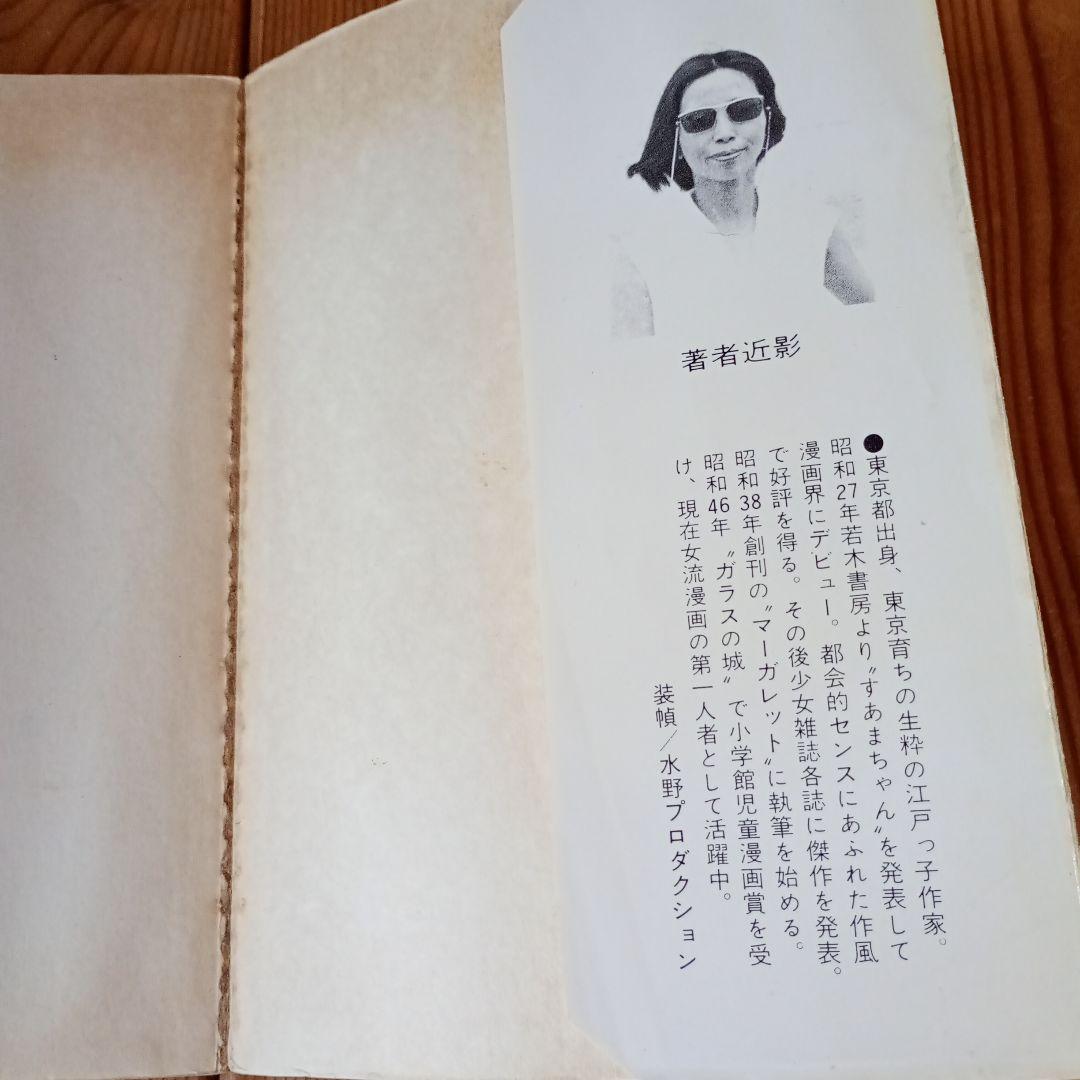 著者近影
●東京都出身、東京育ちの生粋の江戸っ子作家。
昭和27年若木書房より〝すあまちゃん〟を発表して
漫画界にデビュー。都会的センスにあふれた作風
で好評を得る。その後少女雑誌各誌に傑作を発表。
昭和38年創刊の〝マーガレット〟に執筆を始める。
昭和46年〝ガラスの城〟で小学館児童漫画賞を受
け、現在女流漫画の第一人者として活躍中。
装幀/水野プロダクション